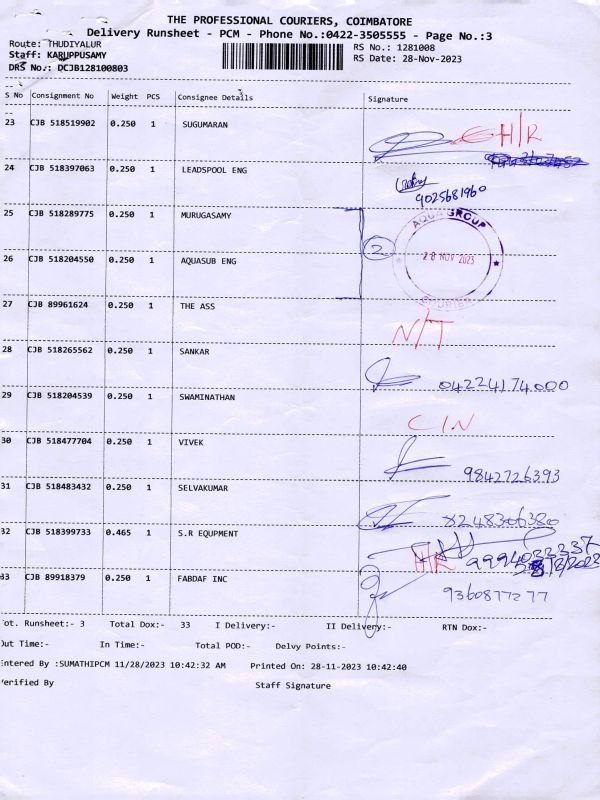 THE PROFESSIONAL COURIERS, COIMBATORE
Delivery Runsheet - PCM - Phone No.:0422-3505555 - Page No.:3
Route: THUDIYALUR
RS No.: 1281008
Staff: KARUPPUSAMY
RS Date: 28-Nov-2023
DRS No.: DCJB128100803
S No Consignment No Weight PCS Consignee Details Signature
23 CJB 518519902 0.250 1 SUGUMARAN H/R
24 CJB 518397063 0.250 1 LEADSPOOL ENG
9025681960
25 CJB 518289775 0.250 1 MURUGASAMY
AQUA GROUP
2
28 NOV 2023
26 CJB 518204550 0.250 1 AQUASUB ENG
27 CJB 89961624 0.250 1 THE ASS N/T
28 CJB 518265562 0.250 1 SANKAR
04224174000
29 CJB 518204539 0.250 1 SWAMINATHAN C/N
30 CJB 518477704 0.250 1 VIVEK
9842726393
31 CJB 518483432 0.250 1 SELVAKUMAR
8248306380
32 CJB 518399733 0.465 1 S.R EQUPMENT H/R
33 CJB 89918379 0.250 1 FABDAF INC
9360877277
ot. Runsheet:- 3 Total Dox:- 33 I Delivery:- II Delivery:- RTN Dox:-
Out Time:- In Time:- Total POD:- Delvy Points:-
ntered By :SUMATHIPCM 11/28/2023 10:42:32 AM Printed On: 28-11-2023 10:42:40
erified By Staff Signature